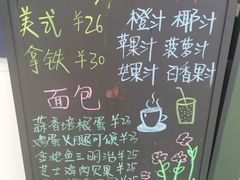 美式 ¥26
拿铁 ¥30
橙汁 椰汁
苹果汁 菠萝汁
芒果汁 百香果汁
面包
蒜香培根蛋 ¥23
鸡蛋火腿可颂 ¥23
金枪鱼三明治 ¥25
芝士鸡肉贝果 ¥25